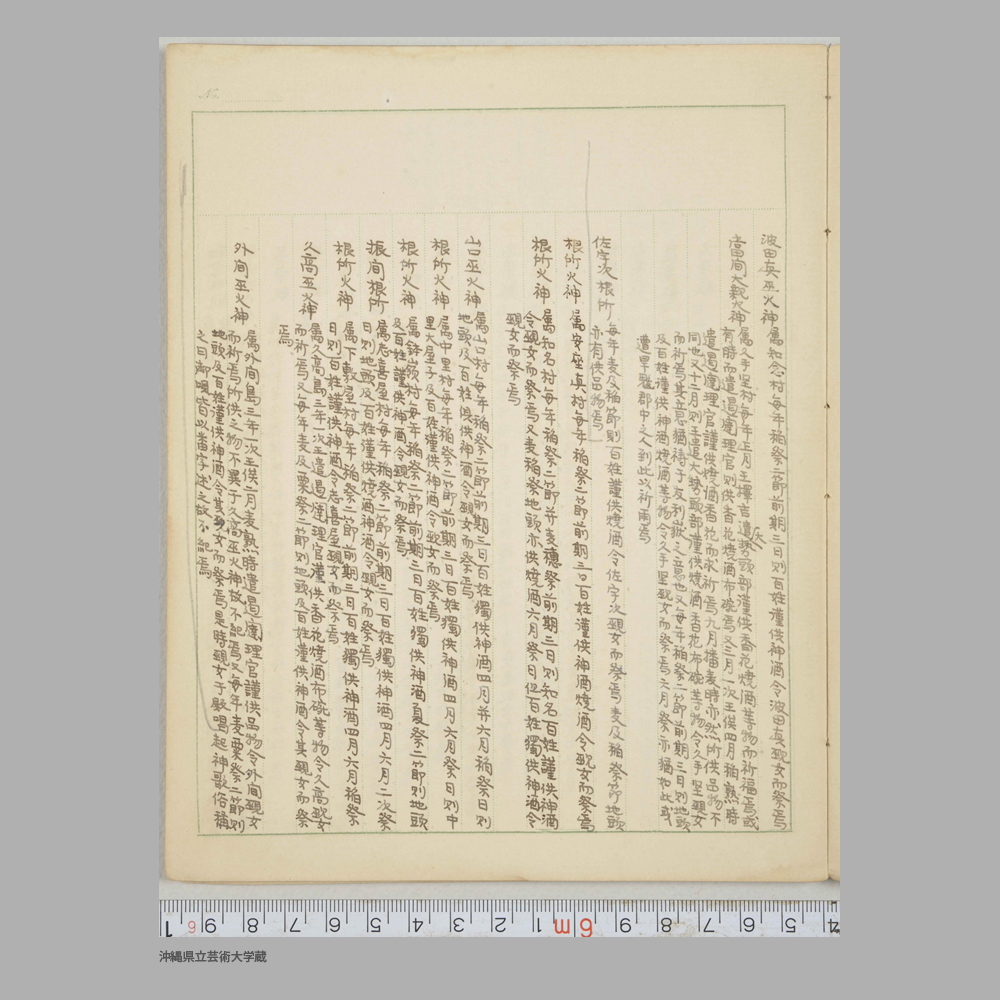 No.
波田真巫火神 属知念村每年稲祭二節前期三日則百姓謹供神酒令波田真覡女而祭焉
當間大親火神 属久手堅村每年正月王擇吉遣勢頭部謹供香花焼酒等物而祈福焉或
大
有時而遣過遑理官則供香花焼酒布疏焉又三月一次王俟四月稲熟時
遣過遑理官謹供焼酒香花而求祈焉九月播麦時亦然所供品物不
同也又十二月則王遣大勢頭部謹供焼酒香花布疏等物令久手堅覡女
而祈焉其意猶祷于友利嶽之意也又每年稲祭二節前期三日則地頭
及百姓謹供神酒焼酒等物令久手堅覡女而祭焉六月祭亦猶如此或
遭旱魃郡中之人到此以祈雨焉
佐宇次根所 每年麦及稲節則百姓謹供焼酒令佐宇次覡女而祭焉麦及稲祭節地頭
亦有供品物焉
根所火神 属安座真村每年稲祭二節前期三日百姓謹供神酒焼酒令覡女而祭焉
根所火神 属知名村每年稲祭二節前期并麦穗祭前期三日則知名百姓謹供神酒
令覡女而祭焉又麦稲祭地頭亦供焼酒六月祭日但百姓獨供神酒令
覡女而祭焉
山口巫火神 属山口村每年稲祭二節前期三日百姓獨供神酒四月并六月稲祭日則
地頭及百姓俱供神酒令覡女而祭焉
根所火神 属中里村每年稲祭二節前期三日百姓獨供神酒四月六月祭日則中
里大屋子及百姓謹供神酒令覡女而祭焉
根所火神 属鉢嶺村每年稲祭二節前期三日百姓獨供神酒夏祭二節則地頭
及百姓謹供神酒令覡女而祭焉
振間根所 属志喜屋村每年稲祭二節前期三日百姓獨供神酒四月六月二次祭
日則地頭及百姓謹供焼酒神酒令覡女而祭焉
根所火神 属下敷屋村每年稲祭二節前期三日百姓獨供神酒四月六月稲祭
日則百姓謹供神酒令志喜屋覡女而祭焉
久高巫火神 属久高島三年一次王遣過遑理官謹供香花焼酒布疏等物令久高覡女
而祈焉又每年麦及粟祭二節則地頭及百姓謹供神酒令其覡女而祭
焉
外間巫火神 属外間島三年一次王俟二月麦熟時遣過遑理官謹供品物令外間覡女
而祈焉所供之物不異于久高巫火神故不記焉又每年麦粟祭二節則
地頭及百姓謹供神酒令其覡女而祭焉是時覡女于殿唱起神歌俗稱
之曰御唄皆以番字述之故不記焉
沖縄県立芸術大学蔵